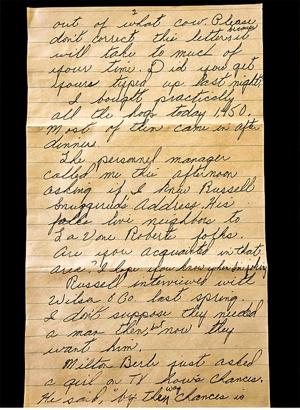 2
out of what cow. Please
don't correct this letter
because it
will take to much of
your time. Did you get
yours typed up last night?
I bought practically
all the hogs today, 1450.
Most of them came in after
dinner.
The personnel manager
called me this afternoon
asking if I knew Russell
address. His
folks live neighbors to
La Vone Roberts folks.
Are you acquainted in that
area? I hope you know when I'm joking
Russell interviewed with
Wilson & Co. last spring.
I don't suppose they needed
a man then, but now they
want him.
Milton Berle just asked
a girl on TV how's chances.
He said, "by the way chances is